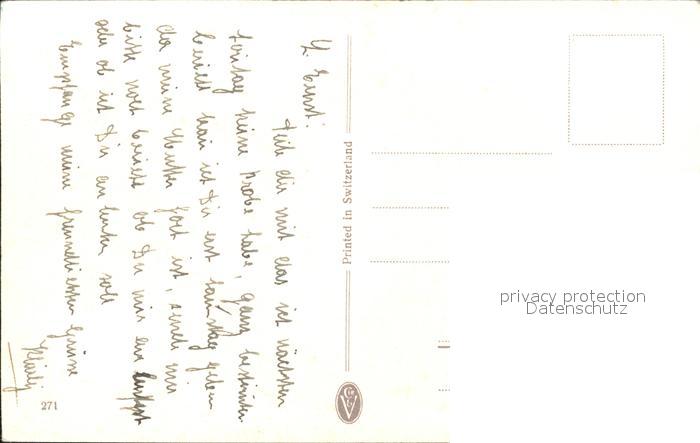 L. Ernst!
Teile dir mit das ich nächsten
Freitag keine Probe habe, ganz bestimten
bericht kan ich Dir erst Samstag geben
da meine Mutter fort ist, sende mir
bitte noch bericht ob Du mir
oder ob ich Dir an soll
Empfange meine freundlichsten Grüsse
Printed in Switzerland
271
privacy protection
Datenschutz